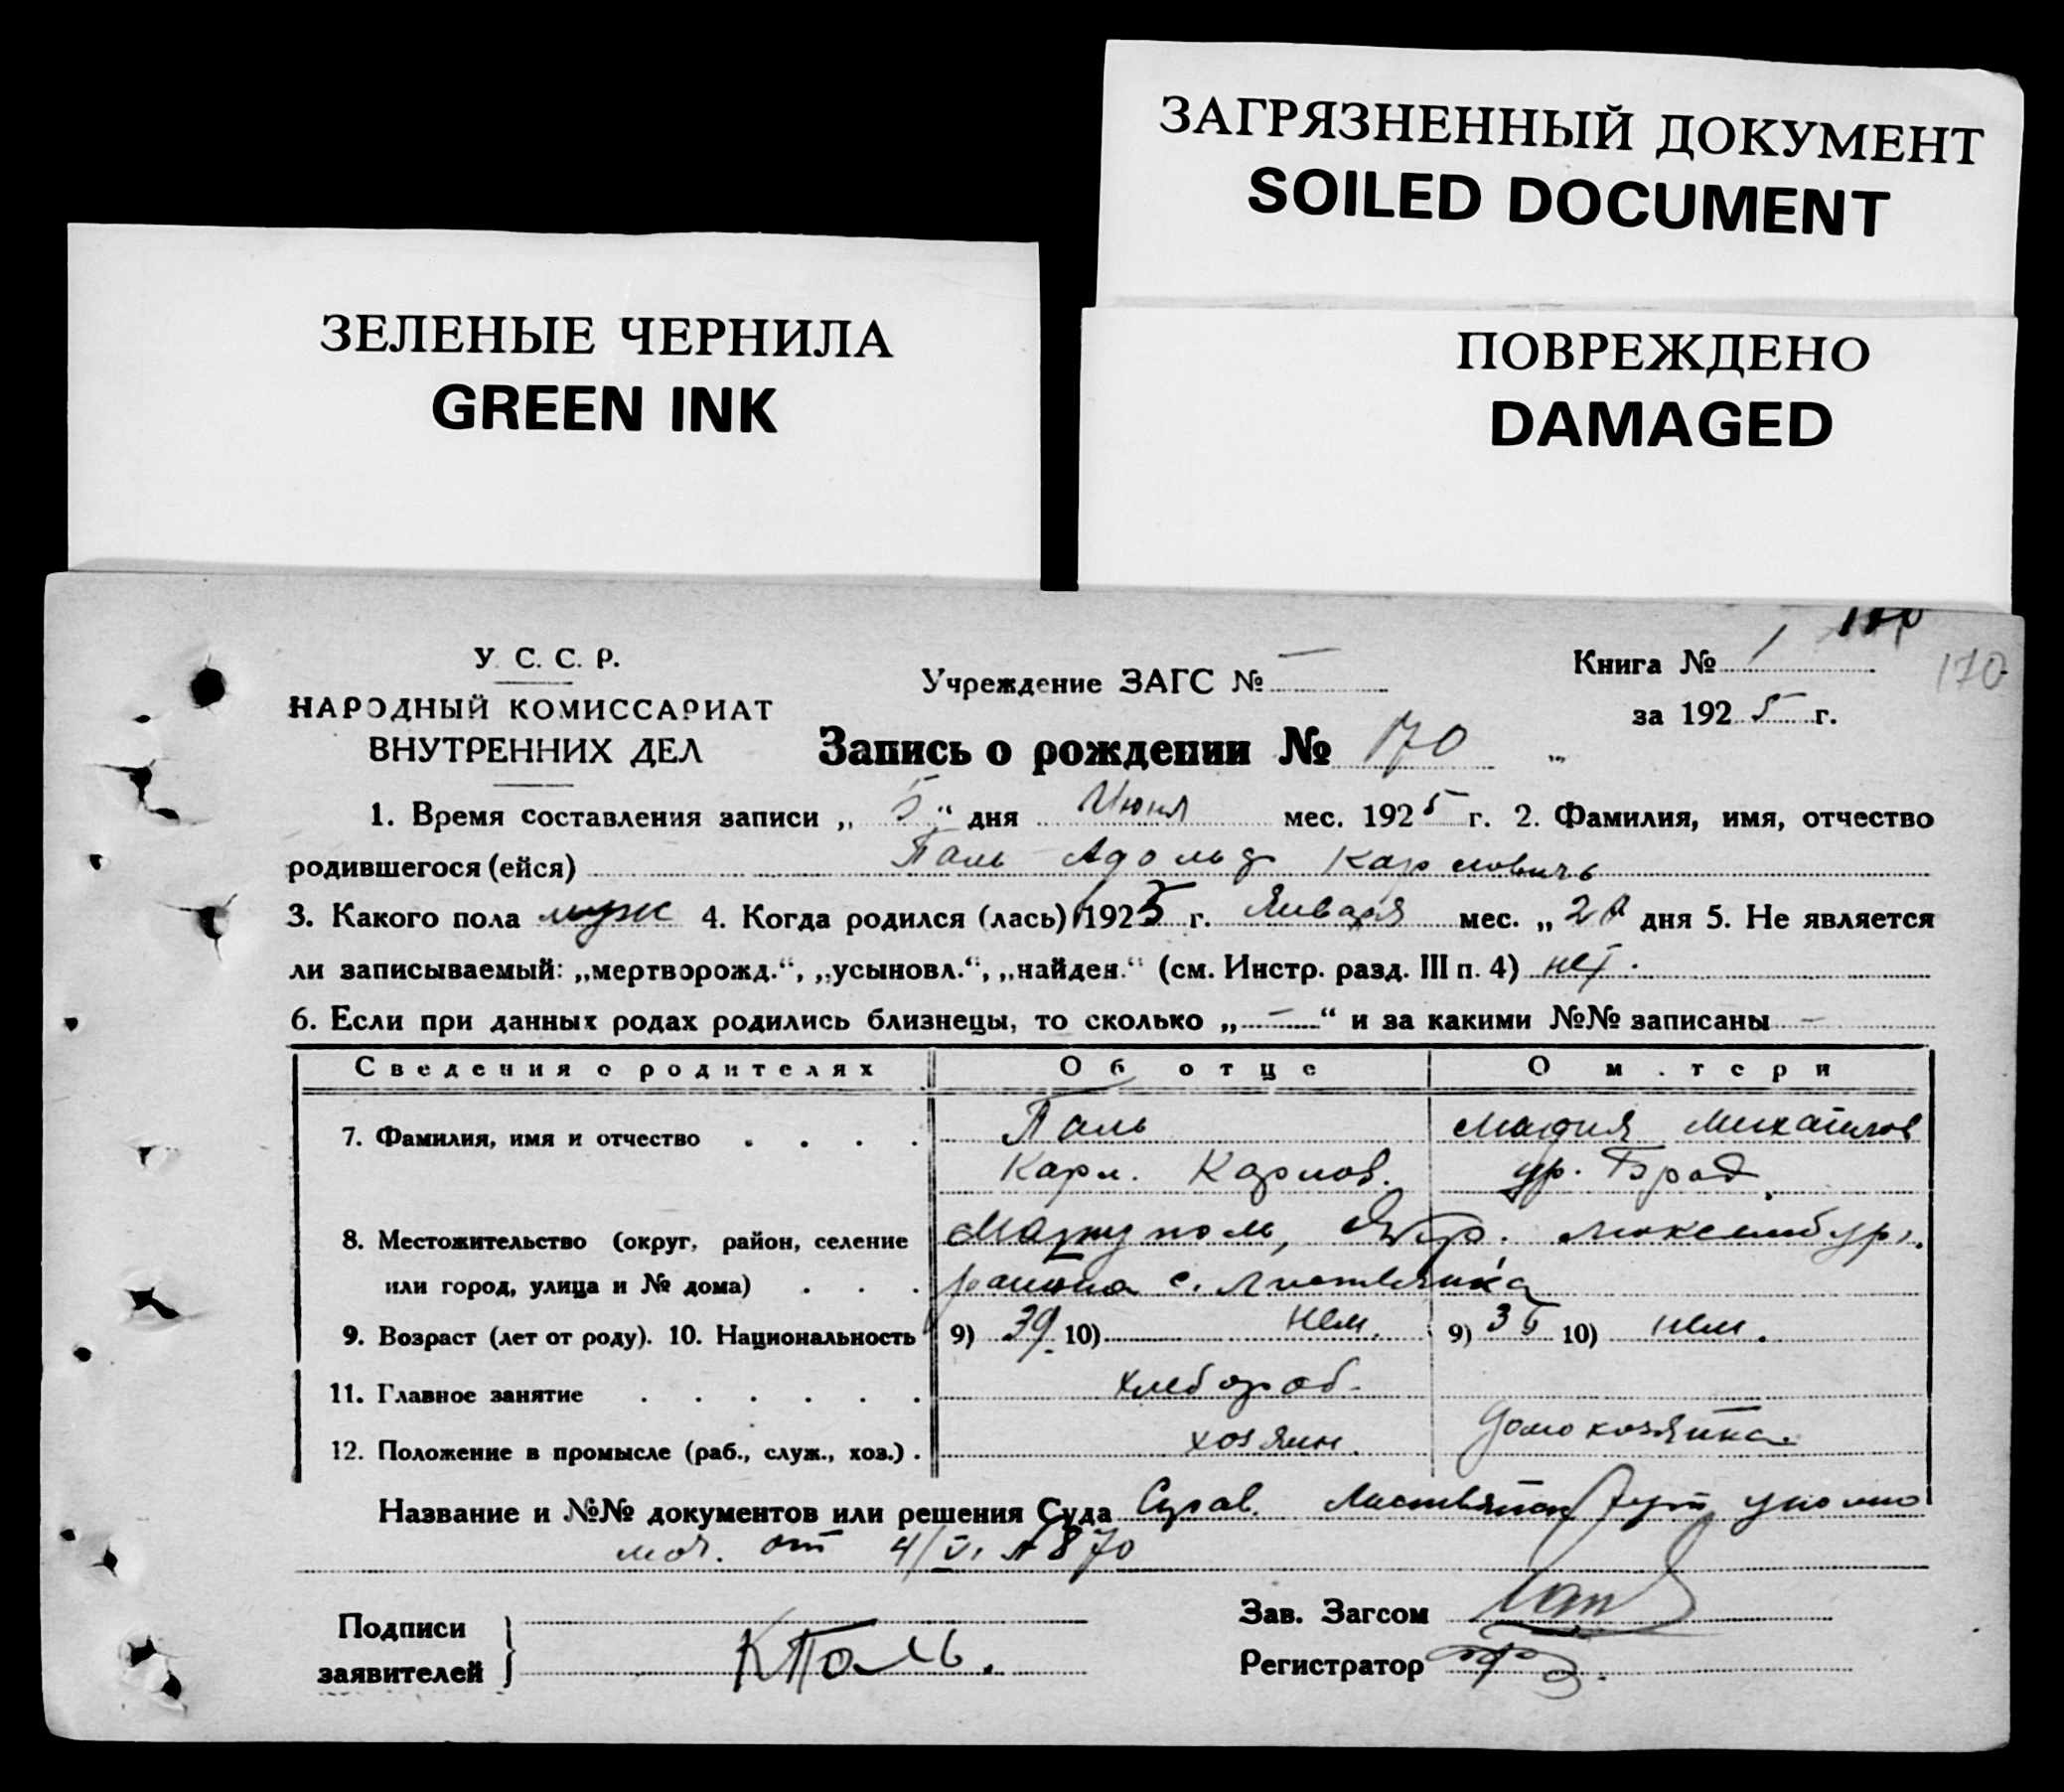 ЗАГРЯЗНЕННЫЙ ДОКУМЕНТ
SOILED DOCUMENT
ЗЕЛЕНЫЕ ЧЕРНИЛА
GREEN INK
ПОВРЕЖДЕНО
DAMAGED
У. С. С. Р.
НАРОДНЫЙ КОМИССАРИАТ
ВНУТРЕННИХ ДЕЛ
Учреждение ЗАГС № —
Книга № 1
170
за 1925 г.
Запись о рождении № 170
1. Время составления записи „5“ дня Июня мес. 1925 г. 2. Фамилия, имя, отчество
родившегося (ейся) Паль Адольф Карлович
3. Какого пола муж 4. Когда родился (лась) 1925 г. Января мес. „ дня 5. Не является
ли записываемый: „мертворожд.“, „усыновл.“, „найден.“ (см. Инстр. разд. III п. 4) нет.
6. Если при данных родах родились близнецы, то сколько „—“ и за какими №№ записаны —
Сведения о родителях Об отце О матери
7. Фамилия, имя и отчество . . . . Паль Мария Михайлов
Карл. Карлов. ур. Брад
8. Местожительство (округ, район, селение Мариуполь, Окр. Люксембург.
или город, улица и № дома) . . . района с. Листвянка
9. Возраст (лет от роду). 10. Национальность 9) 39 10) нем. 9) 10) нем.
11. Главное занятие . . . . . . хлебороб.
12. Положение в промысле (раб., служ., хоз.) . хозяин. домохозяйка.
Название и №№ документов или решения Суда Справ. уполно
моч. от 4/VI № 870
Подписи
заявителей
К Паль.
Зав. Загсом
Регистратор